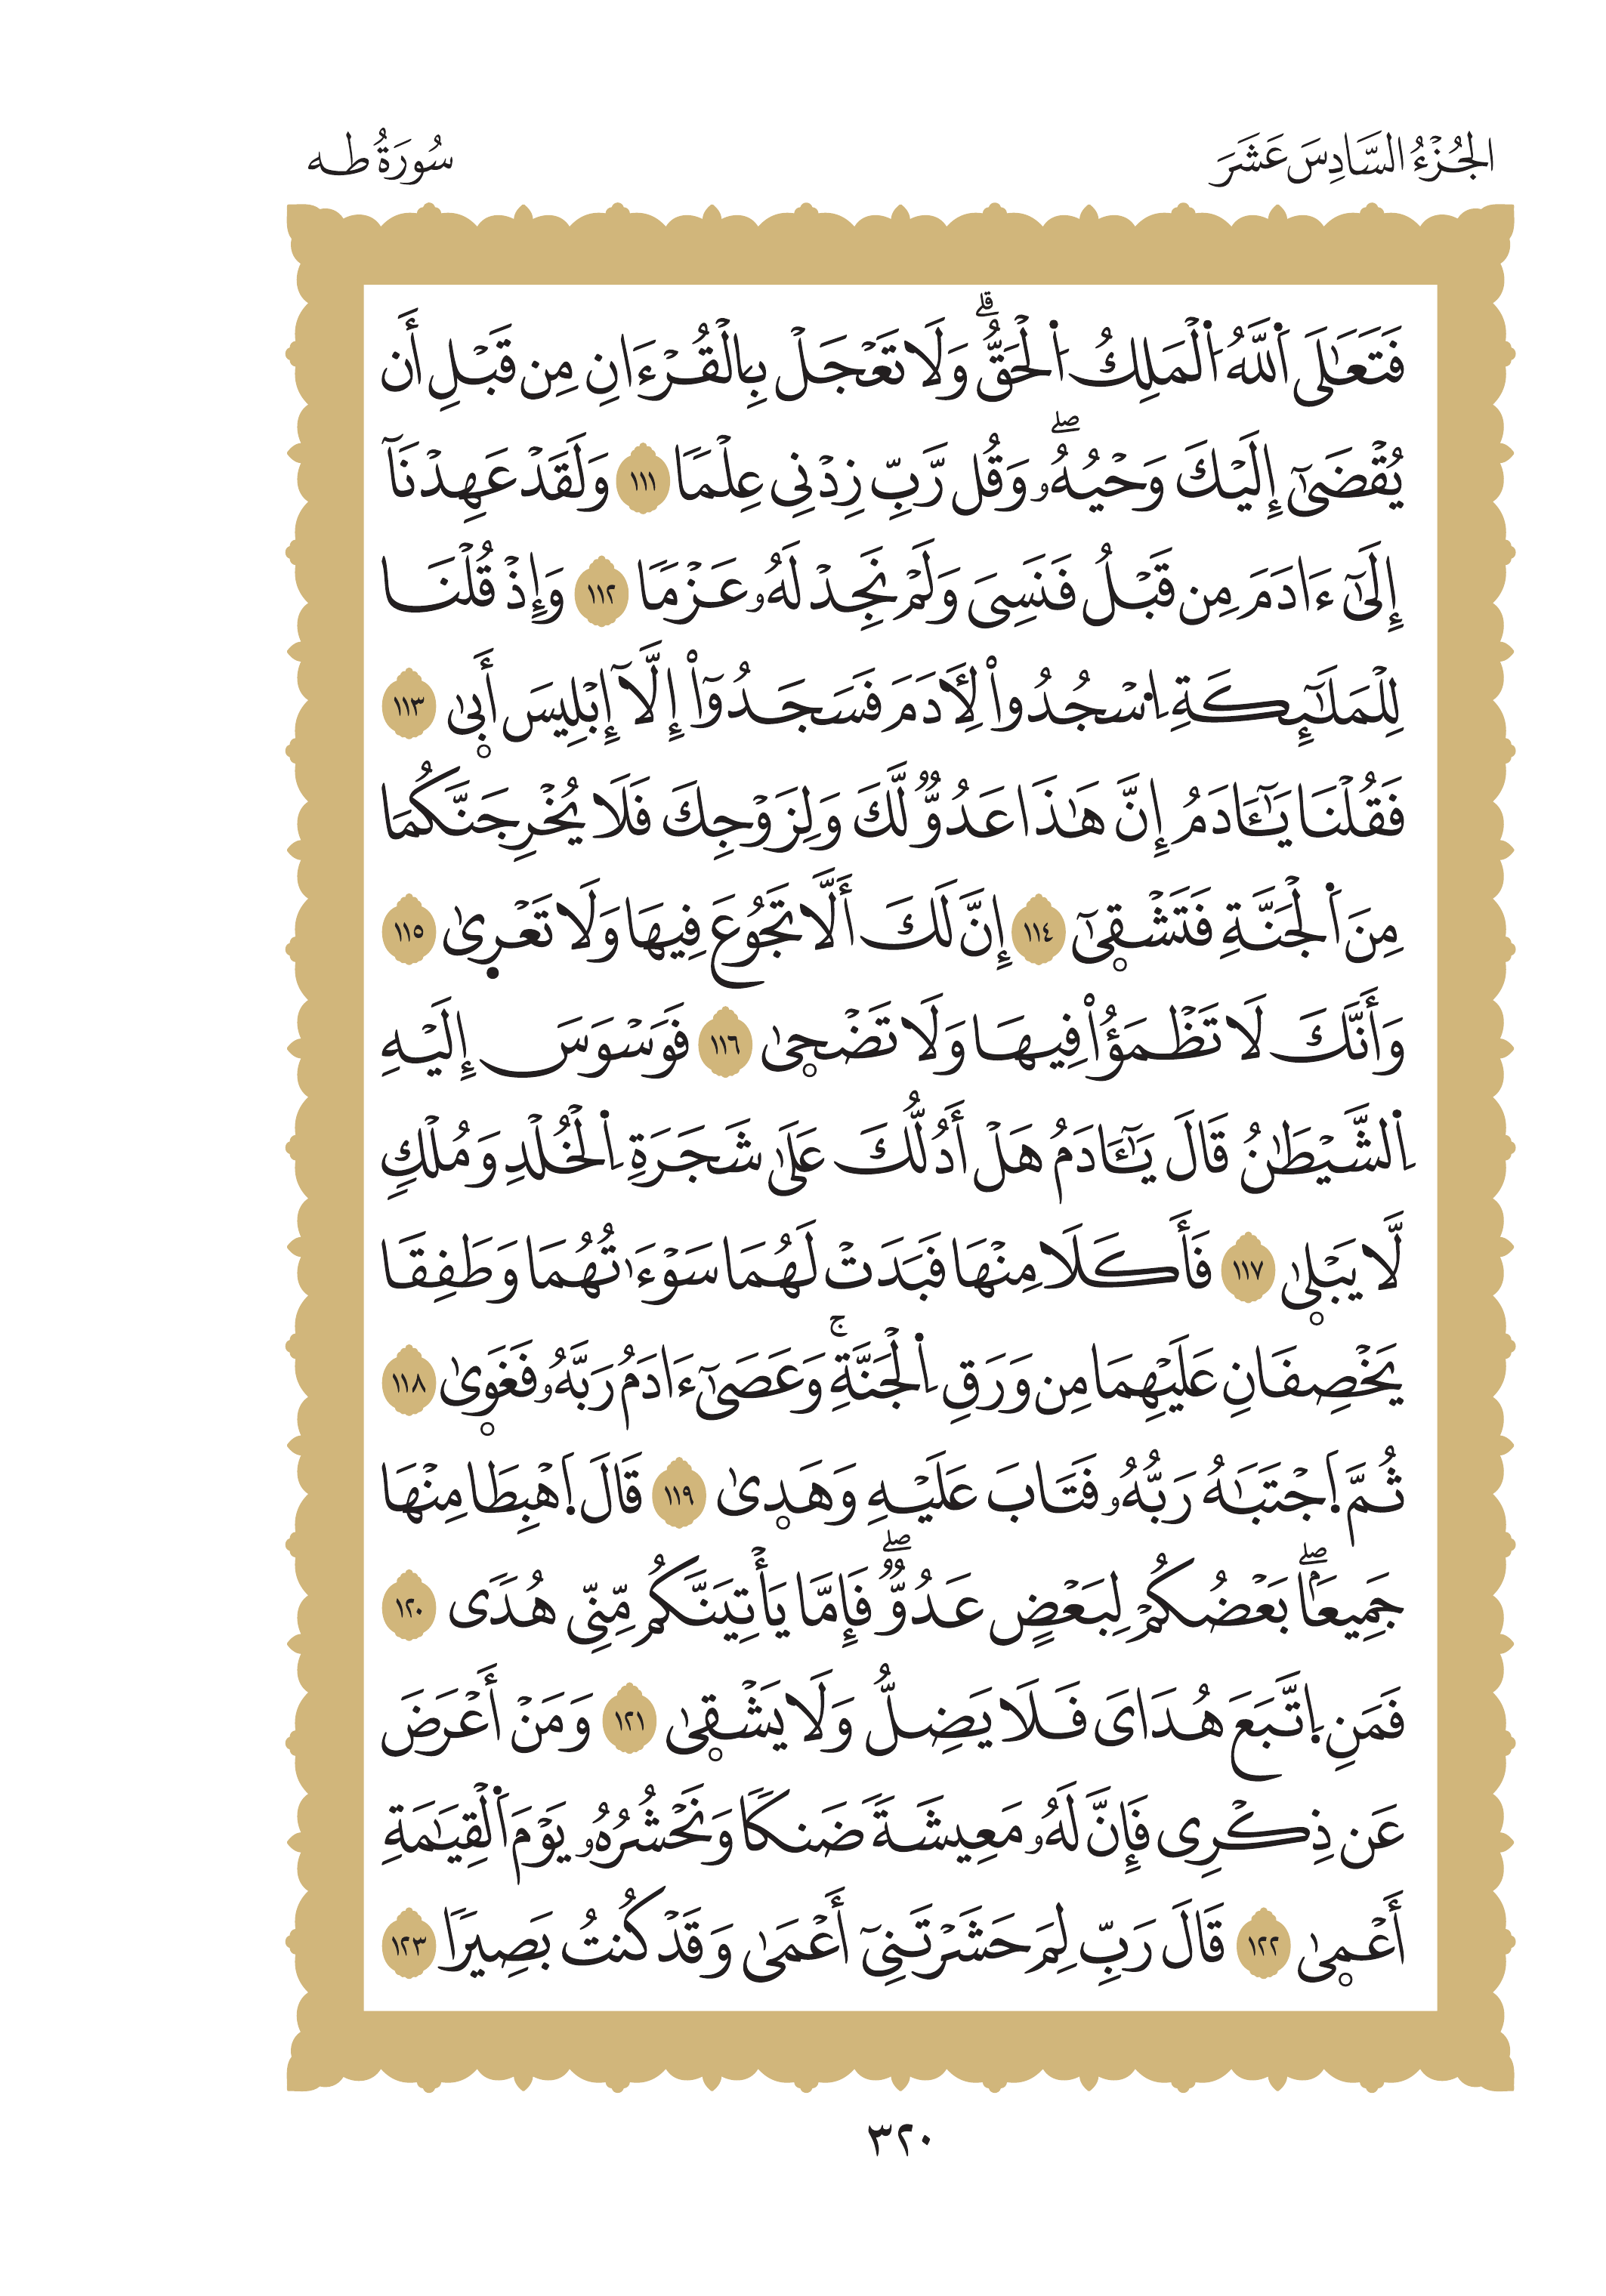 الجُزْءُ السَّادِسَ عَشَرَ
سُورَةُ طه
فَتَعَٰلَى اَ۬للَّهُ اُ۬لْمَلِكُ اُ۬لْحَقُّۖ وَلَا تَعْجَلْ بِالْقُرْءَانِ مِن قَبْلِ أَن
يُقْضَىٰٓ إِلَيْكَ وَحْيُهُۥۖ وَقُل رَّبِّ زِدْنِى عِلْمًا ١١١ وَلَقَدْ عَهِدْنَآ
إِلَىٰٓ ءَادَمَ مِن قَبْلُ فَنَسِىَ وَلَمْ نَجِدْ لَهُۥ عَزْمًا ١١٢ وَإِذْ قُلْنَا
لِلْمَلَٰٓئِكَةِ اِ۟سْجُدُوا۟ لِأٓدَمَ فَسَجَدُوٓا۟ إِلَّآ إِبْلِيسَ أَبٜىٰ ١١٣
فَقُلْنَا يَٰٓـَٔادَمُ إِنَّ هَٰذَا عَدُوٌّ لَّكَ وَلِزَوْجِكَ فَلَا يُخْرِجَنَّكُمَا
مِنَ اَ۬لْجَنَّةِ فَتَشْقٜىٰٓ ١١٤ إِنَّ لَكَ أَلَّا تَجُوعَ فِيهَا وَلَا تَعْرٜىٰ ١١٥
وَأَنَّكَ لَا تَظْمَؤُا۟ فِيهَا وَلَا تَضْحٜىٰ ١١٦ فَوَسْوَسَ إِلَيْهِ
اِ۬لشَّيْطَٰنُ قَالَ يَٰٓـَٔادَمُ هَلْ أَدُلُّكَ عَلَىٰ شَجَرَةِ اِ۬لْخُلْدِ وَمُلْكٍ
لَّا يَبْلٜىٰ ١١٧ فَأَكَلَا مِنْهَا فَبَدَتْ لَهُمَا سَوْءَٰتُهُمَا وَطَفِقَا
يَخْصِفَانِ عَلَيْهِمَا مِن وَرَقِ اِ۬لْجَنَّةِۚ وَعَصَىٰٓ ءَادَمُ رَبَّهُۥ فَغَوٜىٰ ١١٨
ثُمَّ اَ۪جْتَبَٰهُ رَبُّهُۥ فَتَابَ عَلَيْهِ وَهَدٜىٰ ١١٩ قَالَ اَ۪هْبِطَا مِنْهَا
جَمِيعَۢاۖ بَعْضُكُمْ لِبَعْضٍ عَدُوٌّۖ فَإِمَّا يَأْتِيَنَّكُم مِّنِّى هُدًى ١٢٠
فَمَنِ اِ۪تَّبَعَ هُدَاىَ فَلَا يَضِلُّ وَلَا يَشْقٜىٰ ١٢١ وَمَنْ أَعْرَضَ
عَن ذِكْرِى فَإِنَّ لَهُۥ مَعِيشَةً ضَنكًا وَنَحْشُرُهُۥ يَوْمَ اَ۬لْقِيَٰمَةِ
أَعْمٜىٰ ١٢٢ قَالَ رَبِّ لِمَ حَشَرْتَنِىٓ أَعْمَىٰ وَقَدْ كُنتُ بَصِيرًا ١٢٣
٣٢٠